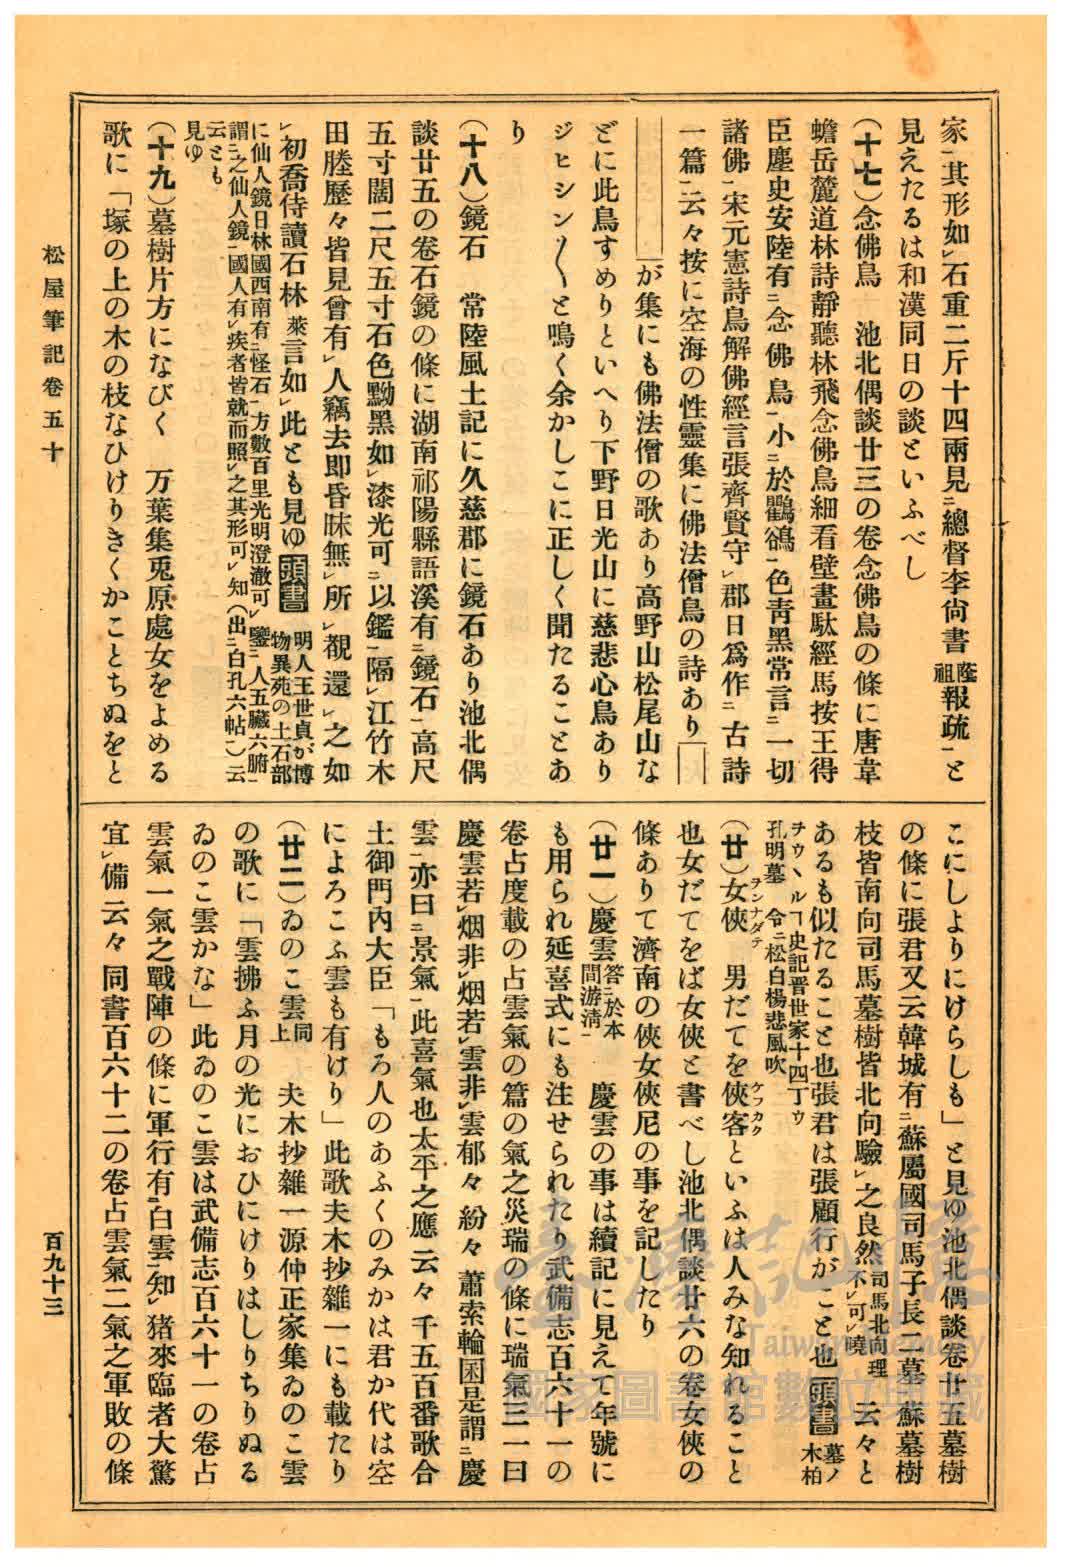 家一其形如レ石重二斤十四兩見二總督李尙書蔭祖報疏一と
見えたるは和漢同日の談といふべし
（十七）念佛鳥　池北偶談廿三の卷念佛鳥の條に唐韋
蟾岳麓道林詩靜聽林飛念佛鳥細看壁畫駄經馬按王得
臣塵史安陸有二念佛鳥一小二於鸜鵒一色靑黑常言二一切
諸佛一宋元憲詩鳥解佛經言張齊賢守レ郡日爲作二古詩
一篇一云々按に空海の性靈集に佛法僧鳥の詩あり
が集にも佛法僧の歌あり高野山松尾山な
どに此鳥すめりといへり下野日光山に慈悲心鳥あり
ジヒシン〳〵と鳴く余かしこに正しく聞たることあ
り
（十八）鏡石　常陸風土記に久慈郡に鏡石あり池北偶
談廿五の卷石鏡の條に湖南祁陽縣語溪有二鏡石一高尺
五寸闊二尺五寸石色黝黑如レ漆光可二以鑑一隔レ江竹木
田塍歷々皆見曾有レ人竊去即昏昧無レ所レ覩還レ之如
レ初喬侍讀石林萊言如レ此とも見ゆ頭書明人王世貞が博
物異苑の土石部
に仙人鏡日林國西南有二怪石一方數百里光明澄澈可レ鑒二人五臟六腑一
謂二之仙人鏡一國人有レ疾者皆就而照レ之其形可レ知（出二白孔六帖一）云
云とも
見ゆ
（十九）墓樹片方になびく　万葉集兎原處女をよめる
歌に「塚の上の木の枝なひけりきくかことちぬをと
こにしよりにけらしも」と見ゆ池北偶談卷廿五墓樹
の條に張君又云韓城有二蘇屬國司馬子長二墓一蘇墓樹
枝皆南向司馬墓樹皆北向驗レ之良然司馬北向理
不レ可レ曉　云々と
あるも似たること也張君は張顧行がこと也頭書墓ノ
木柏
ヲウヽルヿ史記晋世家十四丁ウ
孔明墓　令二松白楊悲風吹
（廿）女俠ヲンナダテ　男だてを俠客ケフカクといふは人みな知れること
也女だてをば女俠と書べし池北偶談廿六の卷女俠の
條ありて濟南の俠女俠尼の事を記したり
（廿一）慶雲答二於本
間游淸一　慶雲の事は續記に見えて年號に
も用られ延喜式にも注せられたり武備志百六十一の
卷占度載の占雲氣の篇の氣之災瑞の條に瑞氣三一曰
慶雲若レ烟非レ烟若レ雲非レ雲郁々紛々蕭索輪囷是謂二慶
雲一亦曰二景氣一此喜氣也太平之應云々千五百番歌合
土御門內大臣「もろ人のあふくのみかは君か代は空
によろこふ雲も有けり」此歌夫木抄雜一にも載たり
（廿二）ゐのこ雲同
上　夫木抄雜一源仲正家集ゐのこ雲
の歌に「雲拂ふ月の光におひにけりはしりちりぬる
ゐのこ雲かな」此ゐのこ雲は武備志百六十一の卷占
雲氣一氣之戰陣の條に軍行有二白雲一知レ猪來臨者大驚
宜レ備云々同書百六十二の卷占雲氣二氣之軍敗の條
松屋筆記卷五十
百九十三
臺灣記憶
Taiwan Memory
國家圖書館數位典藏